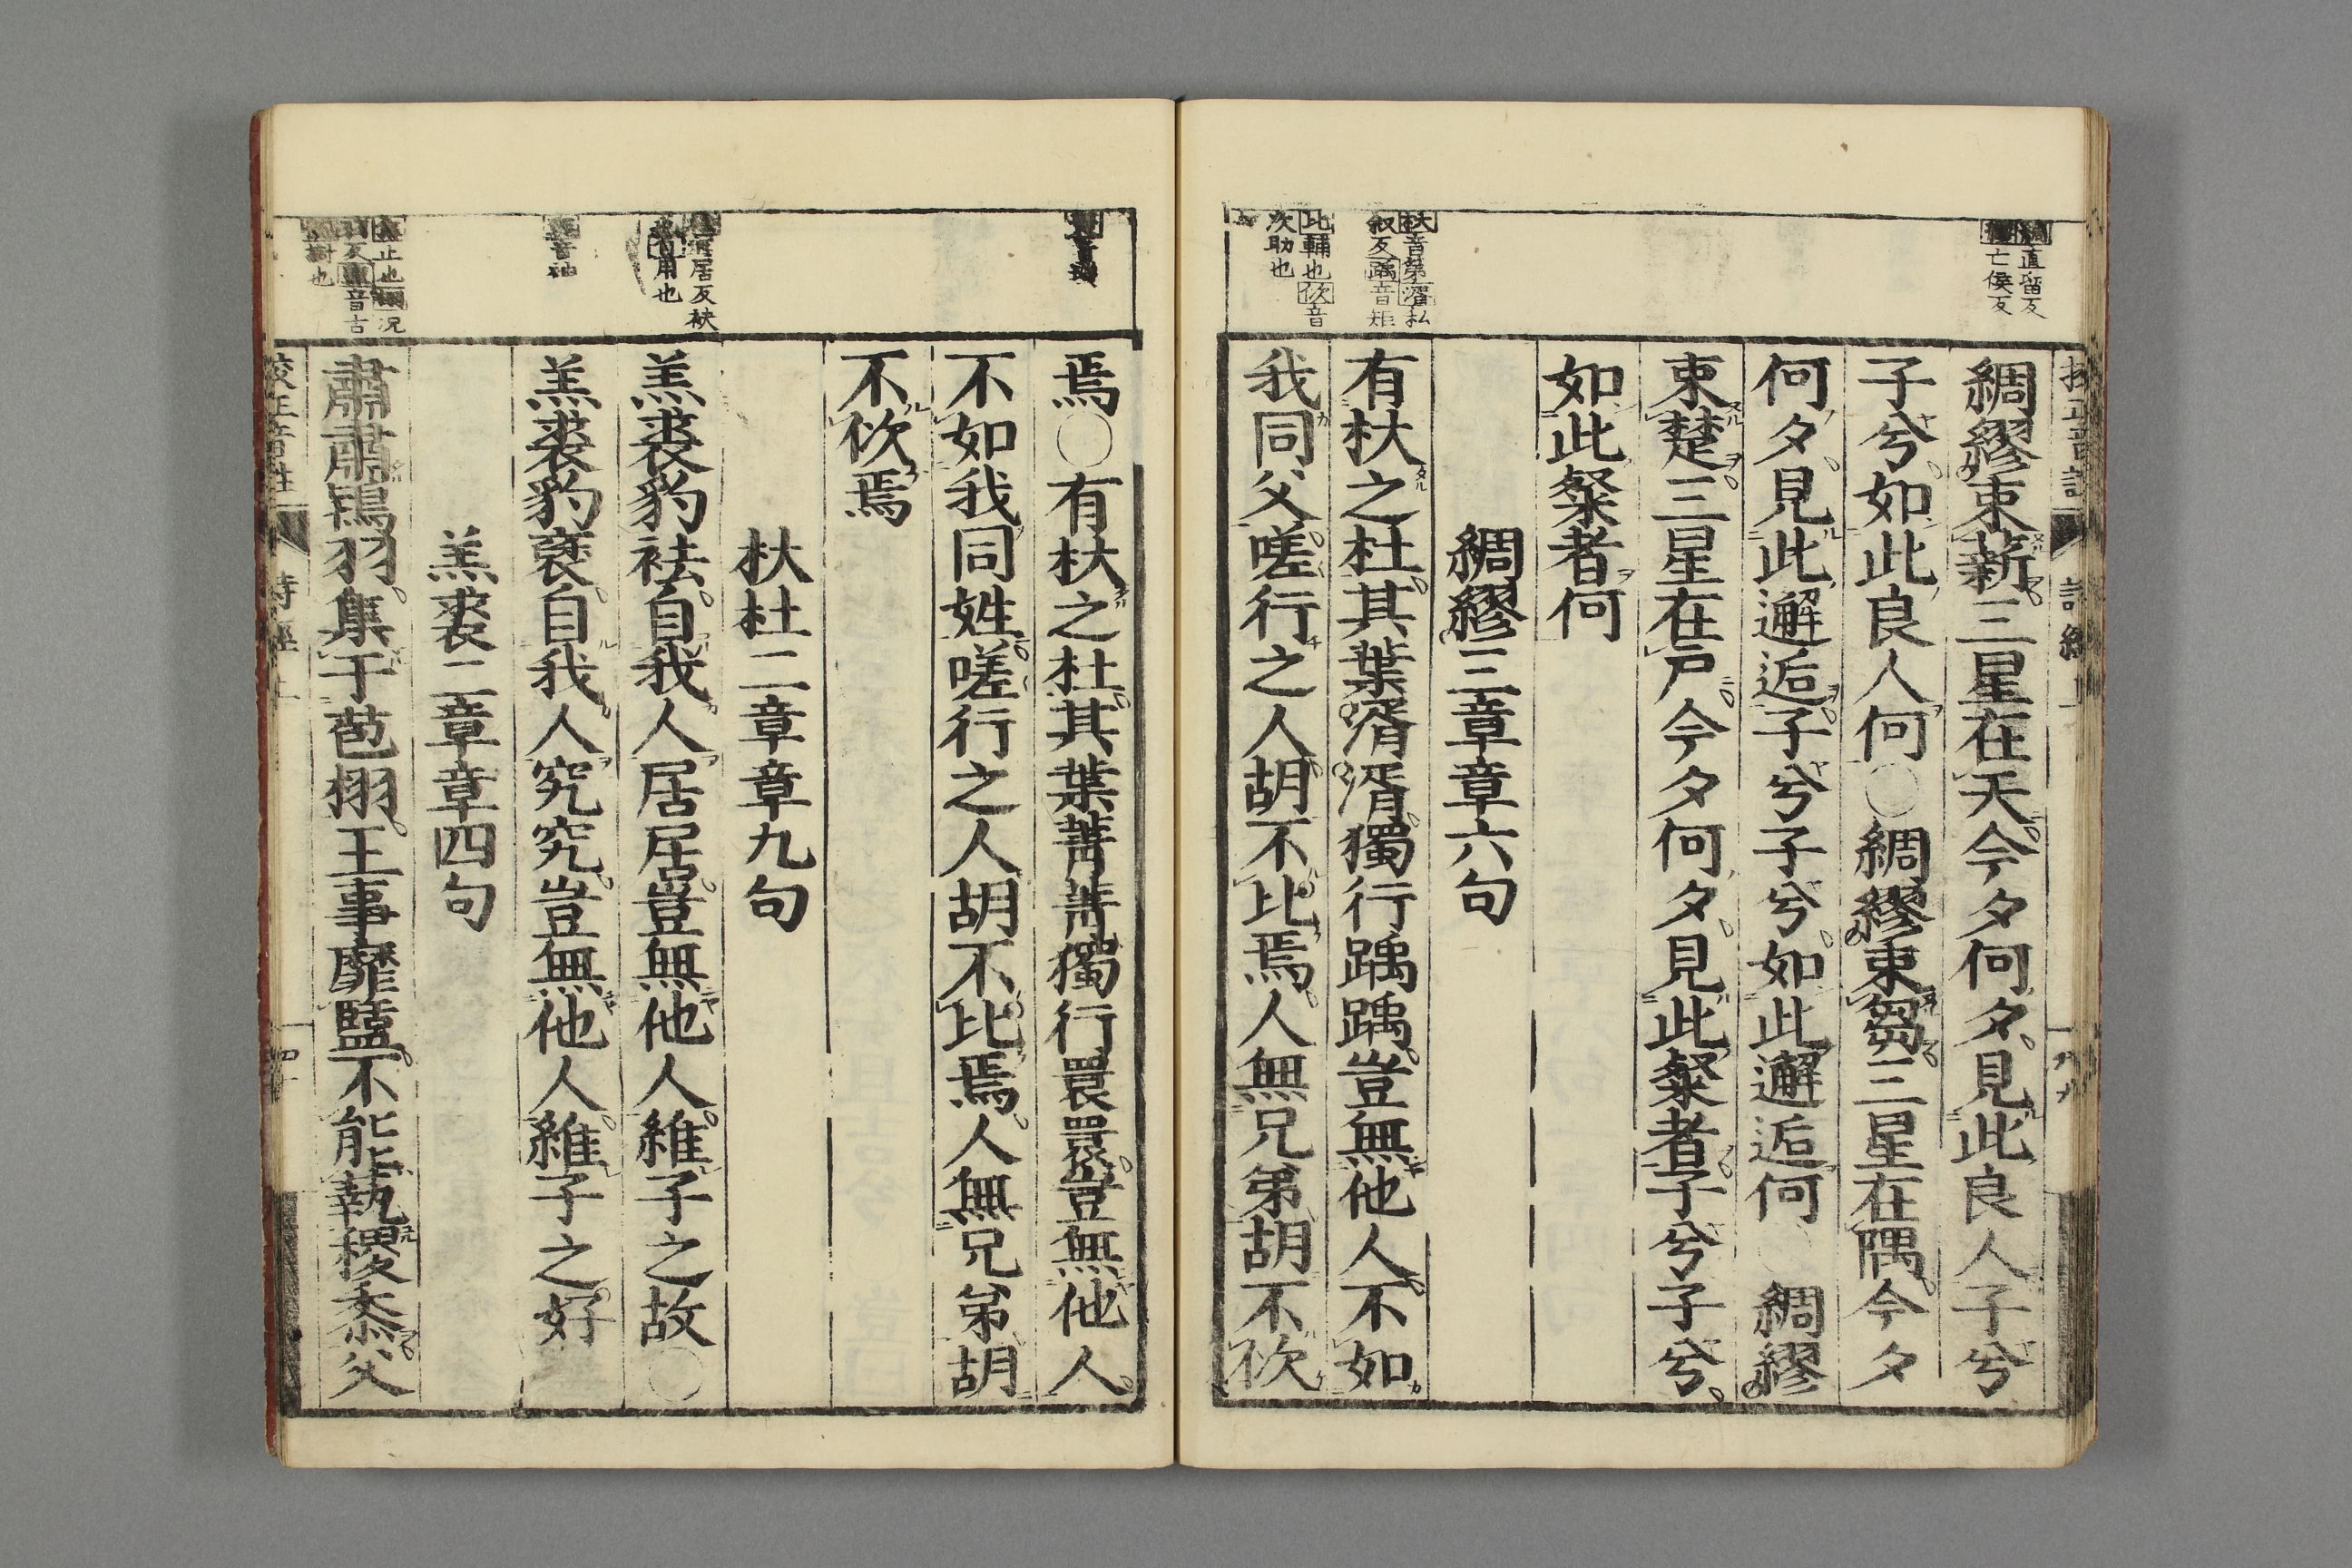 直畱反
亡侯反
綢繆束薪三星在天今夕何夕見此良人子兮
子兮如此良人何○綢繆束芻三星在隅今夕
何夕見此邂逅子兮子兮如此邂逅何○綢繆
束楚三星在戸今夕何夕見此粲者子兮子兮
如此粲者何
綢繆三章章六句
杕音第湑私
叙反踽音矩
比輔也佽音
次助也
有杕之杜其葉湑湑獨行踽踽豈無他人不如
我同父嗟行之人胡不比焉人無兄弟胡不佽
焉○有杕之杜其葉菁菁獨行睘睘豈無他人
不如我同姓嗟行之人胡不比焉人無兄弟胡
不佽焉
杕杜二章章九句
居反袂
也
音袖
羔裘豹袪自我人居居豈無他人維子之故○
羔裘豹褎自我人究究豈無他人維子之好
羔裘二章章四句
止也 况
反 音古
樹也
肅肅鴇羽集于苞栩王事靡盬不能蓺稷黍父
校正音註 詩經上